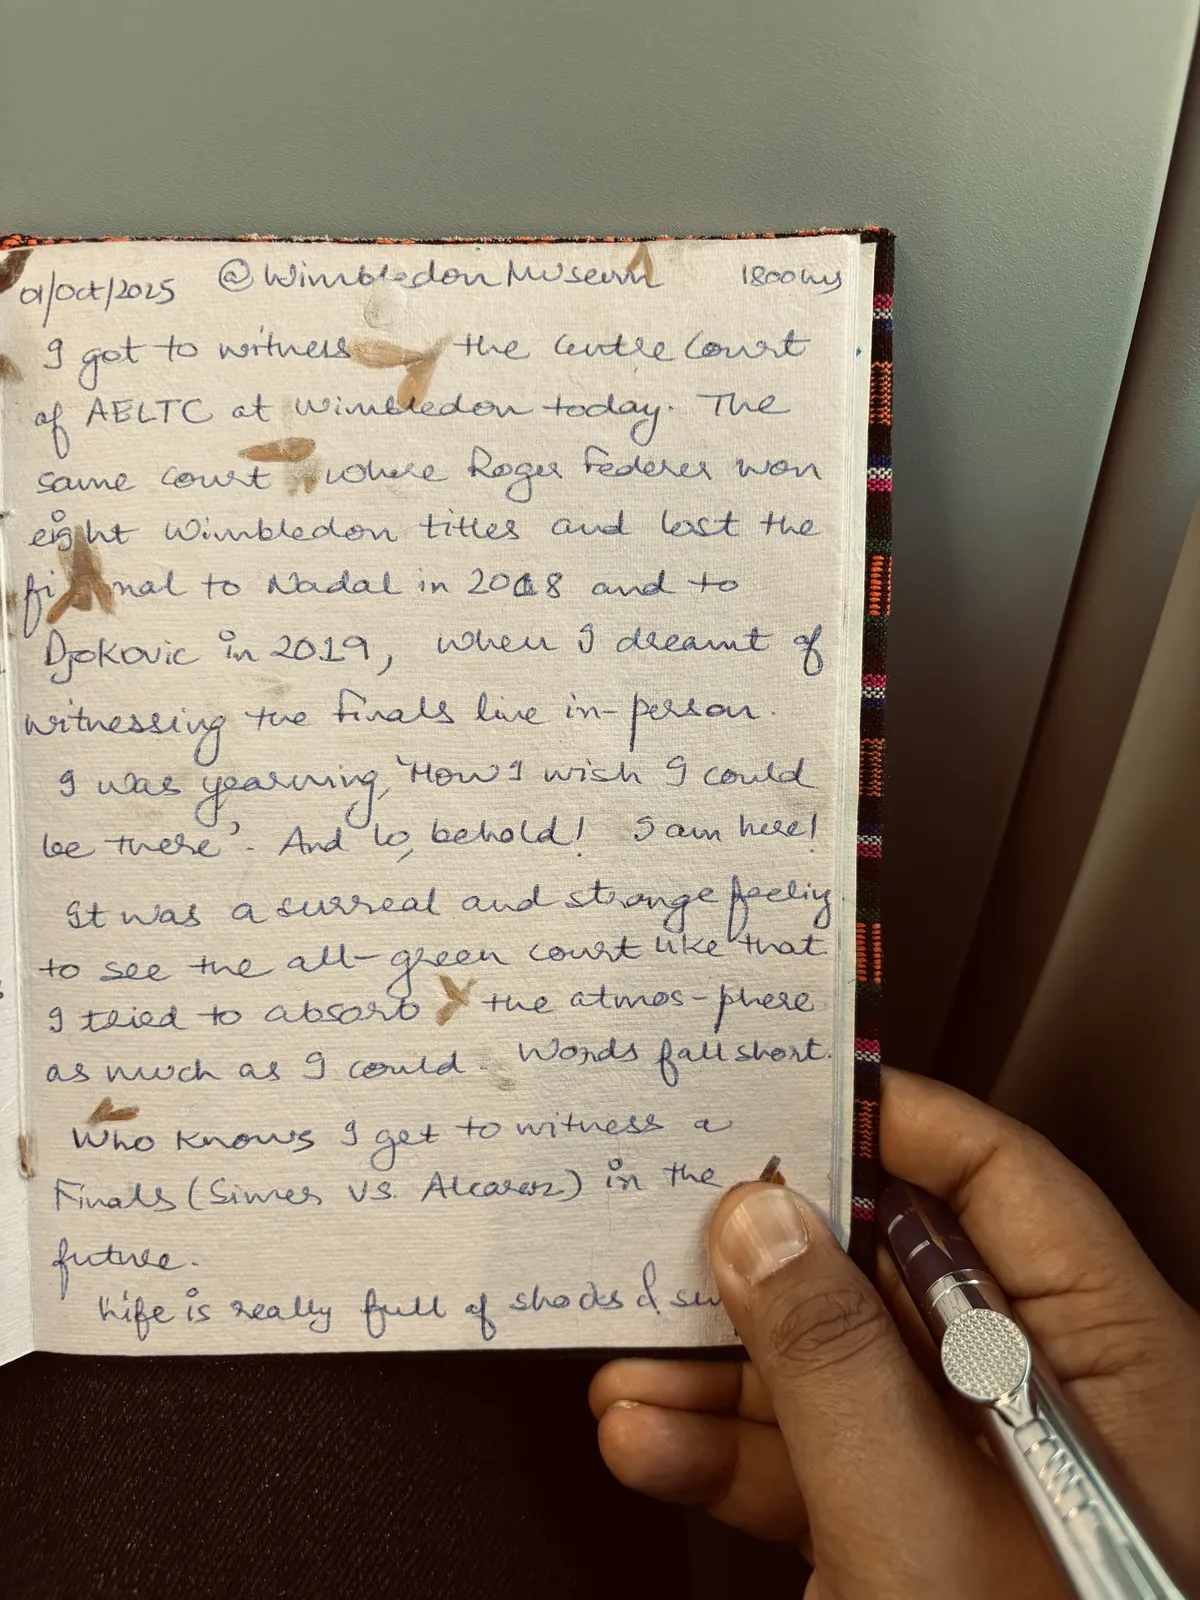 01/Oct/2025 @Wimbledon Museum 1800hrs
I got to witness the Centre Court
of AELTC at Wimbledon today. The
same court where Roger Federer won
eight Wimbledon titles and lost the
final to Nadal in 2008 and to
Djokovic in 2019, when I dreamt of
witnessing the Finals live in-person.
I was yearning, 'How I wish I could
be there'. And lo, behold! I am here!
It was a surreal and strange feeling
to see the all-green court like that.
I tried to absorb the atmos-phere
as much as I could. Words fall short.
Who knows I get to witness a
Finals (Sinner vs. Alcaraz) in the
future.
Life is really full of shocks &